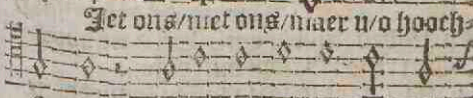 Jet ons/niet ons/maer u/o hooch-